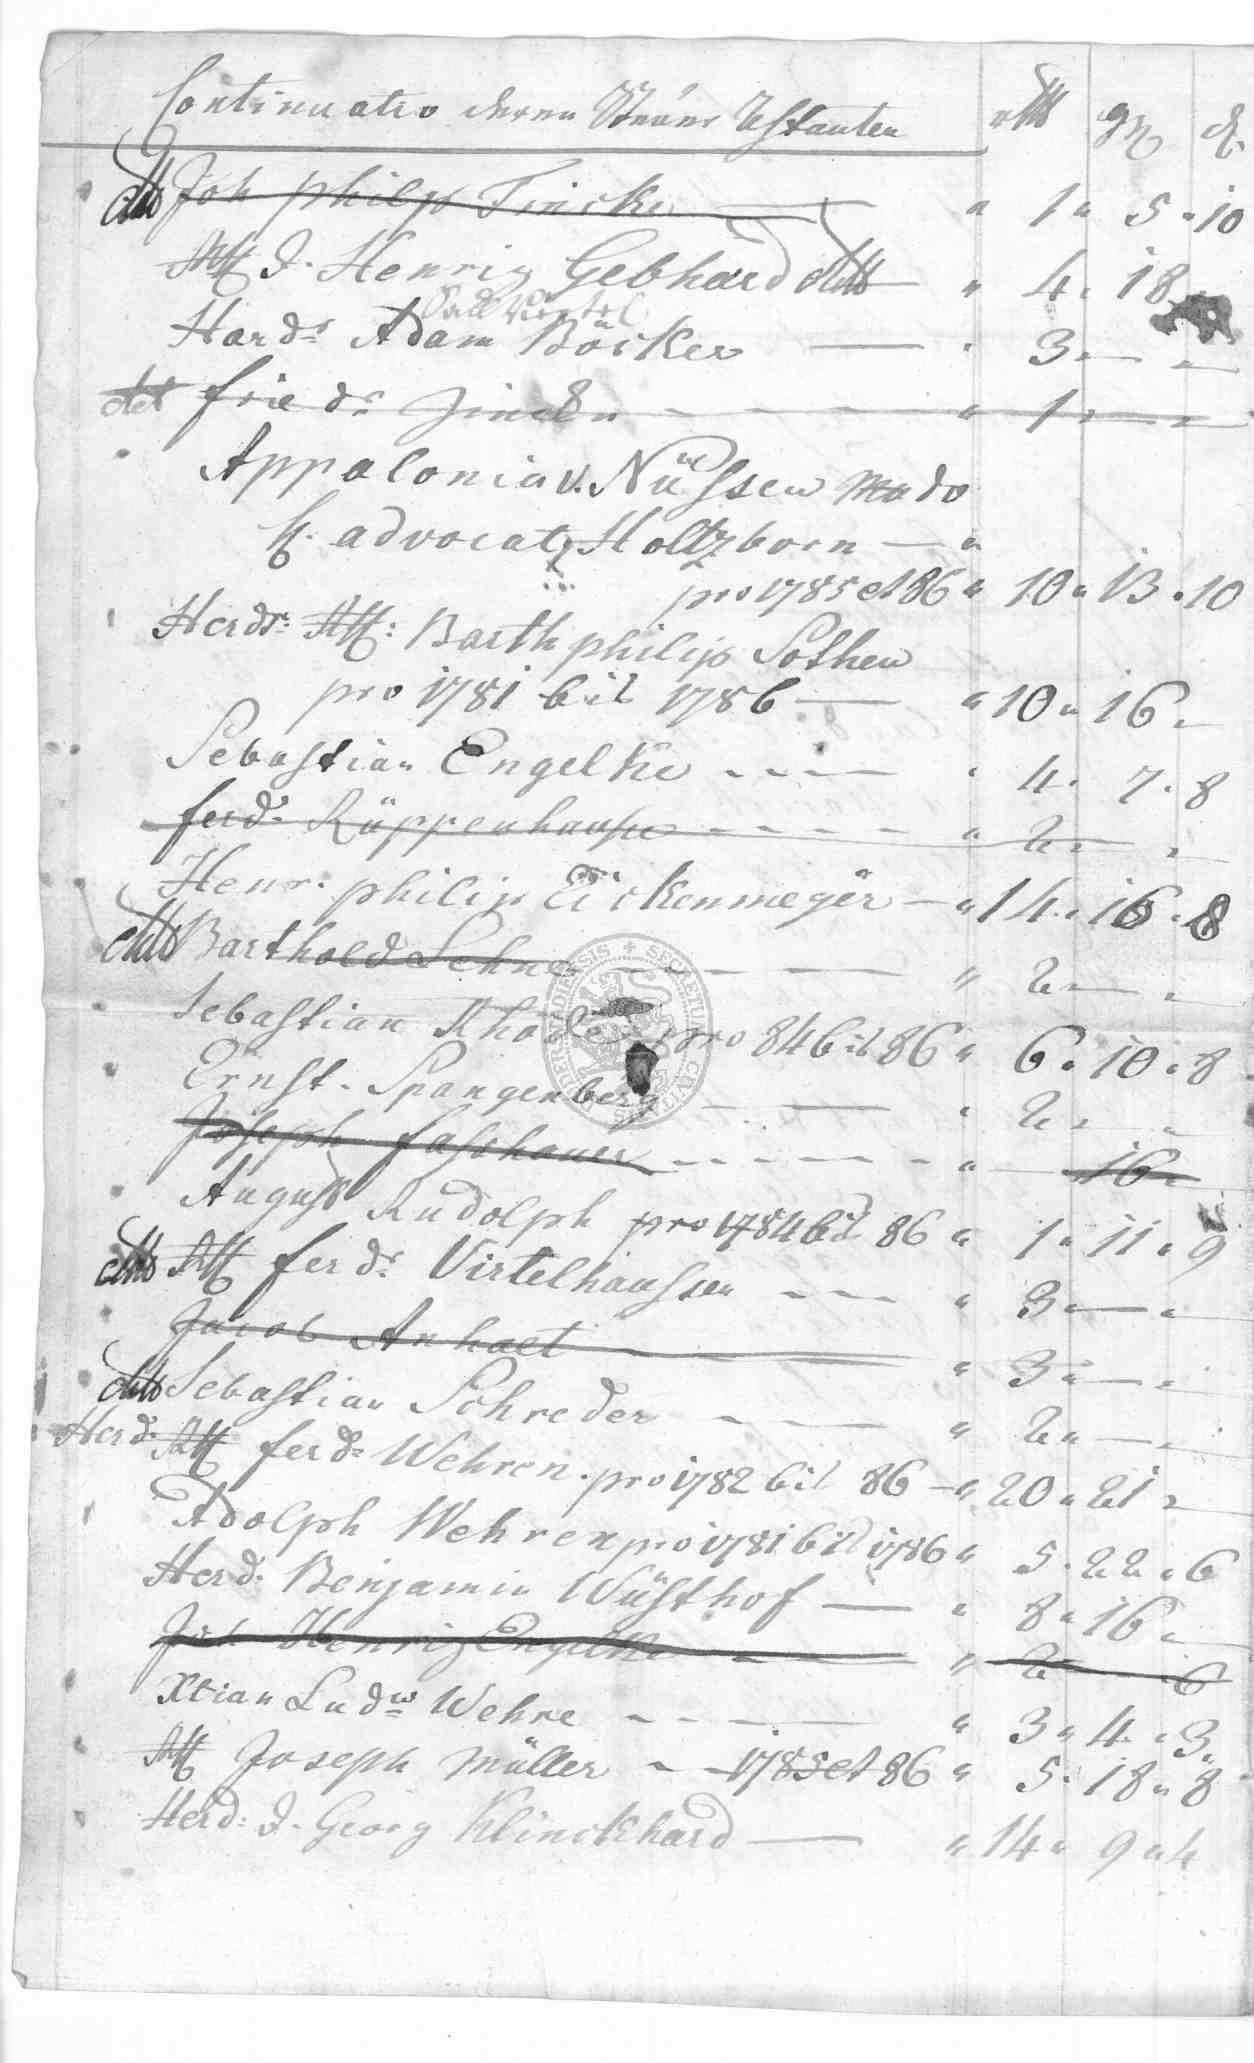 Continuatio deren Steüer Restanten rthl ggr d
dtt Joh philip Fincke " 1 " 5 " 10
Mstr J. Henrig Gebhard dtt " 4 " 18
Sall Viertel
Hards Adam Böcker " 3 " — "
det frieds Fincken " 1 " — "
Appalonia v. Nüssen modo
H. advocat Holtzborn — "
pro 1785 et 86 " 10 " 13 " 10
Herdr: Mstr: Barth philip Sothen
pro 1781 bis 1786 — " 10 " 16 "
Sebastian Engelke " 4 " 7 " 8
ferd: Rüppenhause " 2 " — "
Henr. philip Eickenmeyer — " 14 " 16 " 8
dtt Barthold Sehne " 2 " — "
Sebastian pro 84 bis 86 " 6 " 10 " 8
Ernst. Spangenberg " 2 " — "
Joseph faschauer " — 16 "
August Rudolph pro 1784 bis 86 " 1 " 11 " 9
dtt Mstr ferdr Virtelhaussen " 3 " — "
Jacob Anhalt " 3 " — "
dtt Sebastian Schreder " 2 " — "
Herd: Mstr ferd: Wehren. pro 1782 bis 86 — " 20 " 21 "
Adolph Wehren pro 1781 bis 1786 " 5 " 22 " 6
Herd: Benjamin Wüsthof — " 8 " 16 "
Joh Henrig Engelke " 2 — 6
Xtian Ludw Wehre " 3 " 4 " 3
Mstr Joseph Müller — 1785 et 86 " 5 " 18 " 8
Herd: J. Georg Klinckhard — " 14 " 9 " 4
SECRETUM CIVI